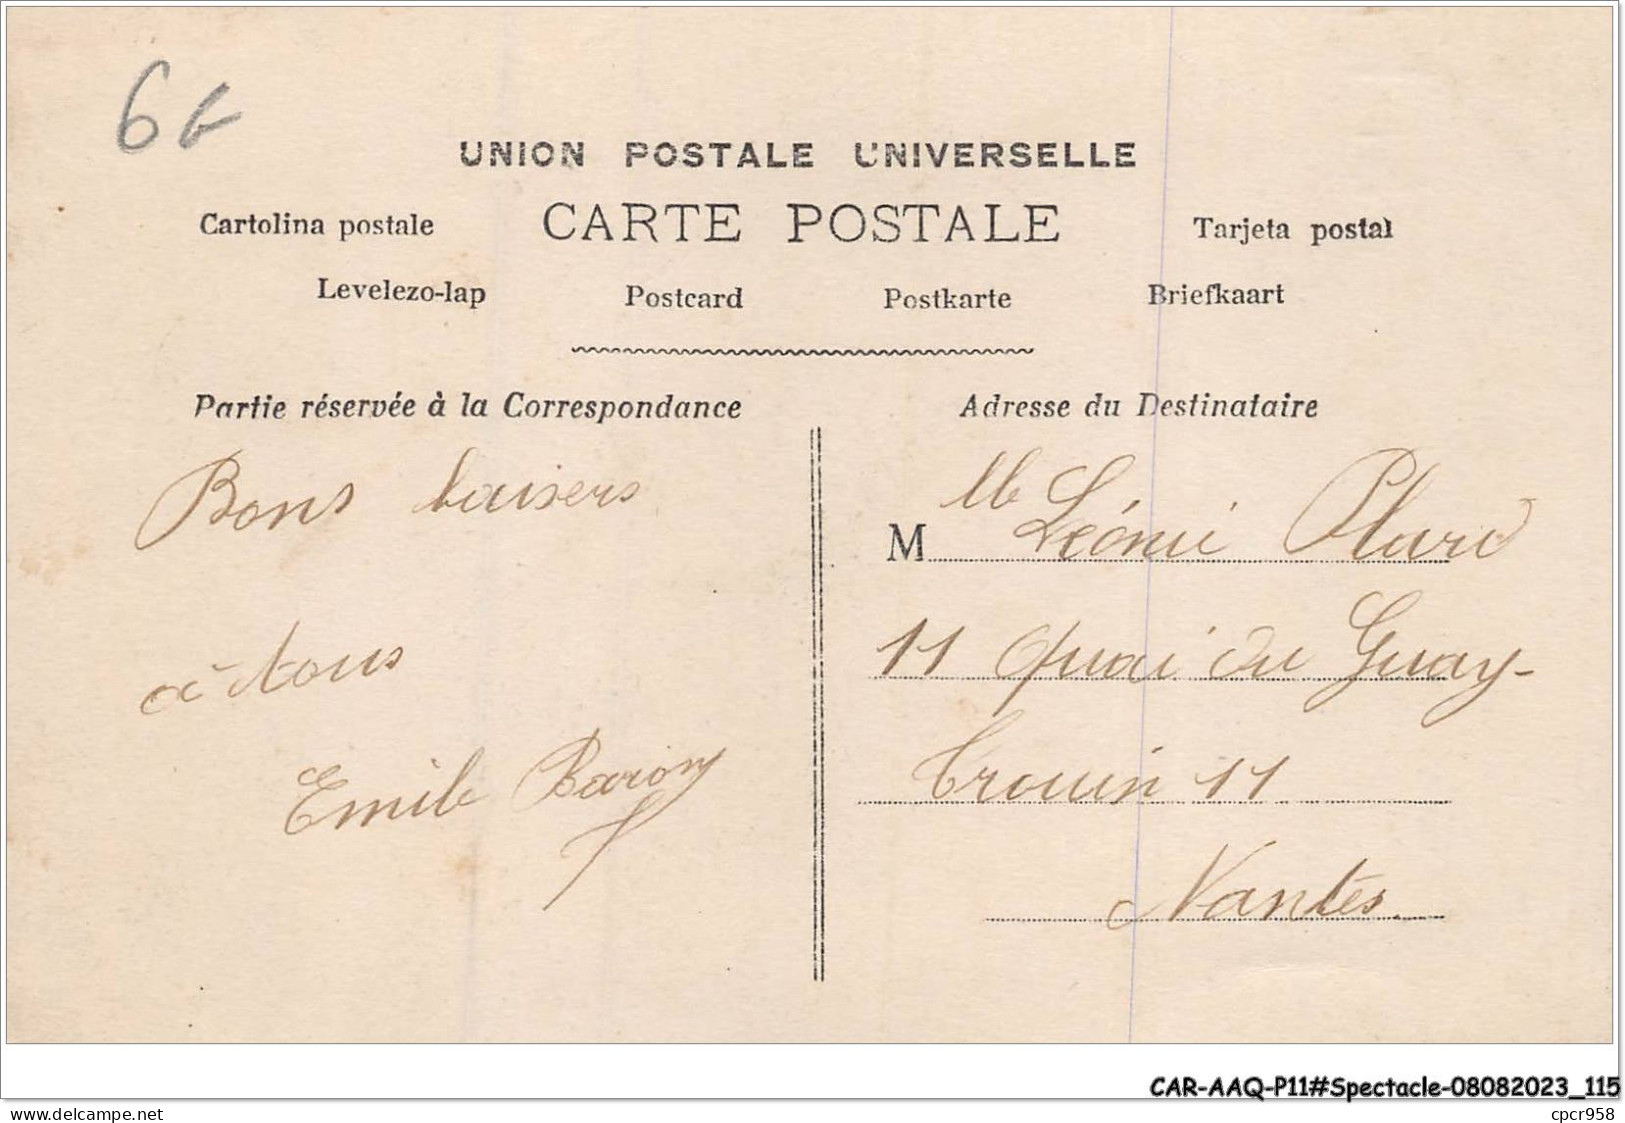 6F
UNION POSTALE UNIVERSELLE
CARTE POSTALE
Cartolina postale
Tarjeta postal
Levelezo-lap
Postcard
Postkarte
Briefkaart
Partie réservée à la Correspondance
Bons baisers
à tous
Emile Baron
Adresse du Destinataire
M lle Léonie Plard
11 Quai du Guay-
Trouin 11
Nantes
CAR-AAQ-P11#Spectacle-08082023_115
www.delcampe.net
cpcr958